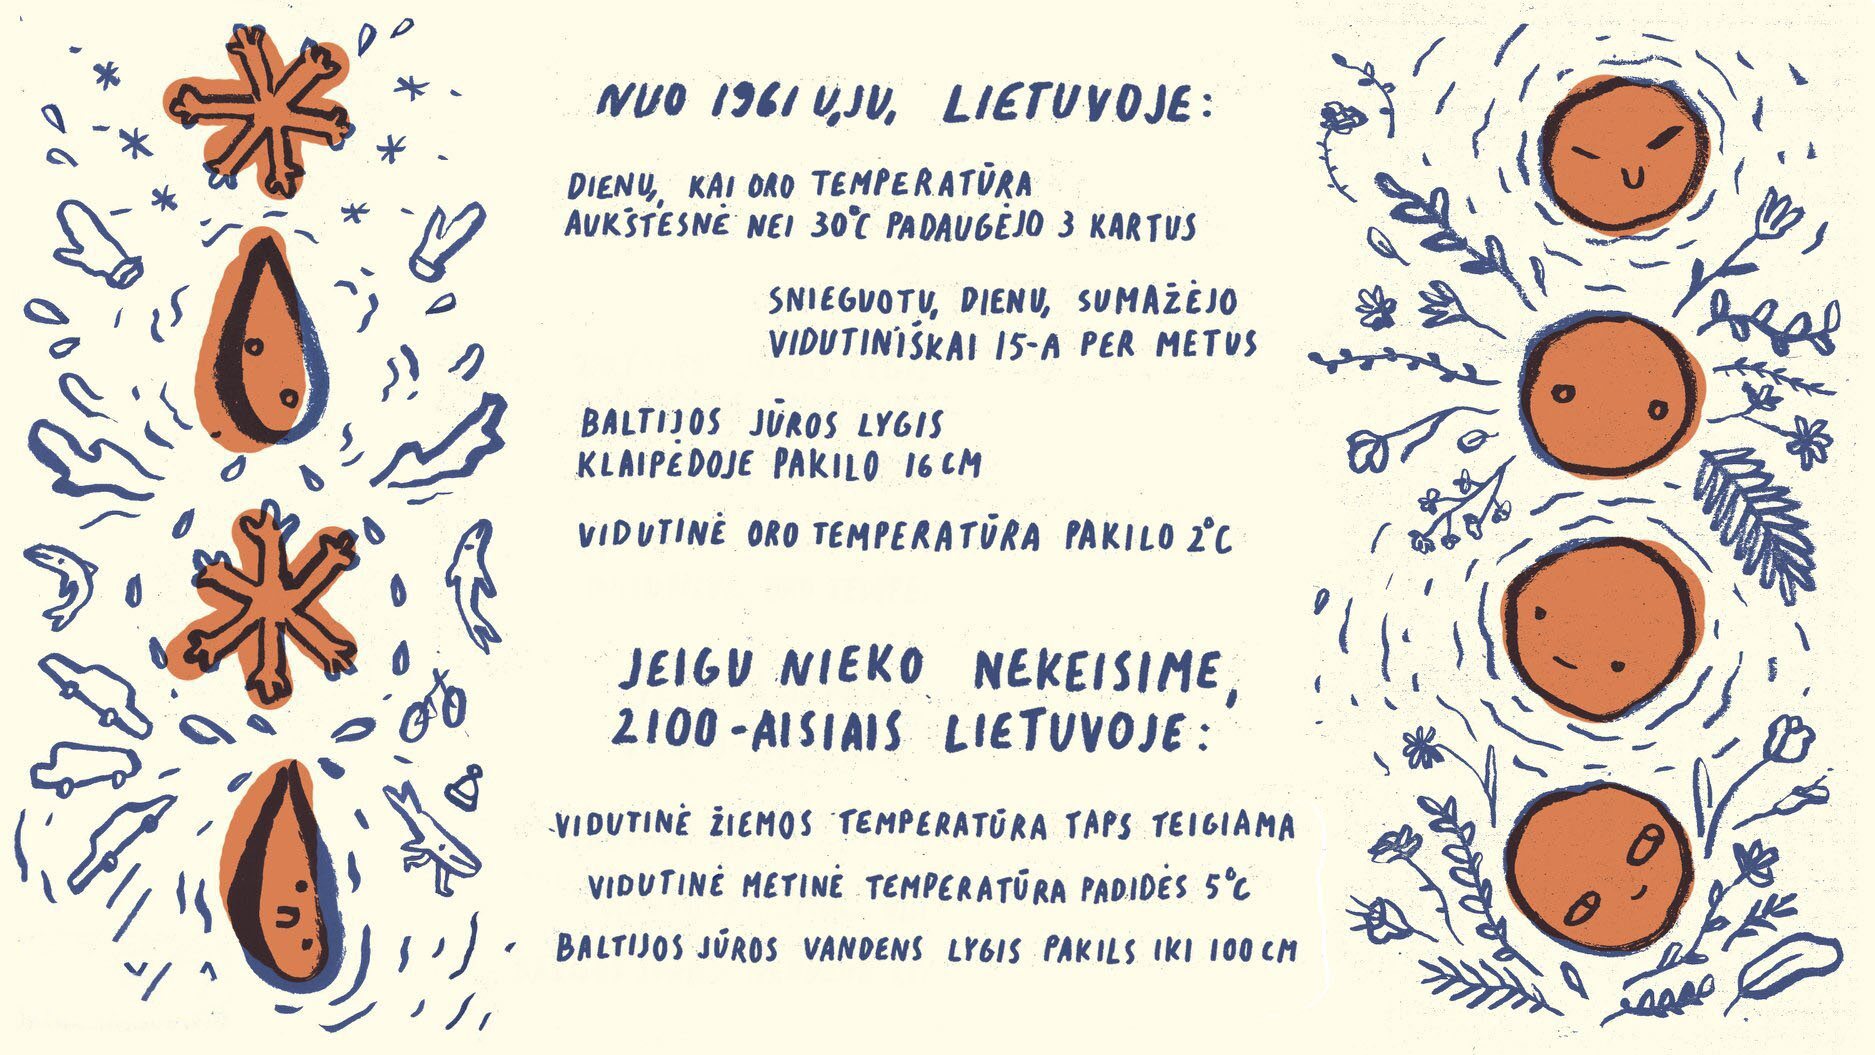 NUO 1961 Ų,JŲ, LIETUVOJE:
DIENŲ, KAI ORO TEMPERATŪRA
AUKŠTESNĖ NEI 30°C PADAUGĖJO 3 KARTUS
SNIEGUOTŲ, DIENŲ, SUMAŽĖJO
VIDUTINIŠKAI 15-A PER METUS
BALTIJOS JŪROS LYGIS
KLAIPĖDOJE PAKILO 16 CM
VIDUTINĖ ORO TEMPERATŪRA PAKILO 2°C
JEIGU NIEKO NEKEISIME,
2100-AISIAIS LIETUVOJE:
VIDUTINĖ ŽIEMOS TEMPERATŪRA TAPS TEIGIAMA
VIDUTINĖ METINĖ TEMPERATŪRA PADIDĖS 5°C
BALTIJOS JŪROS VANDENS LYGIS PAKILS IKI 100 CM